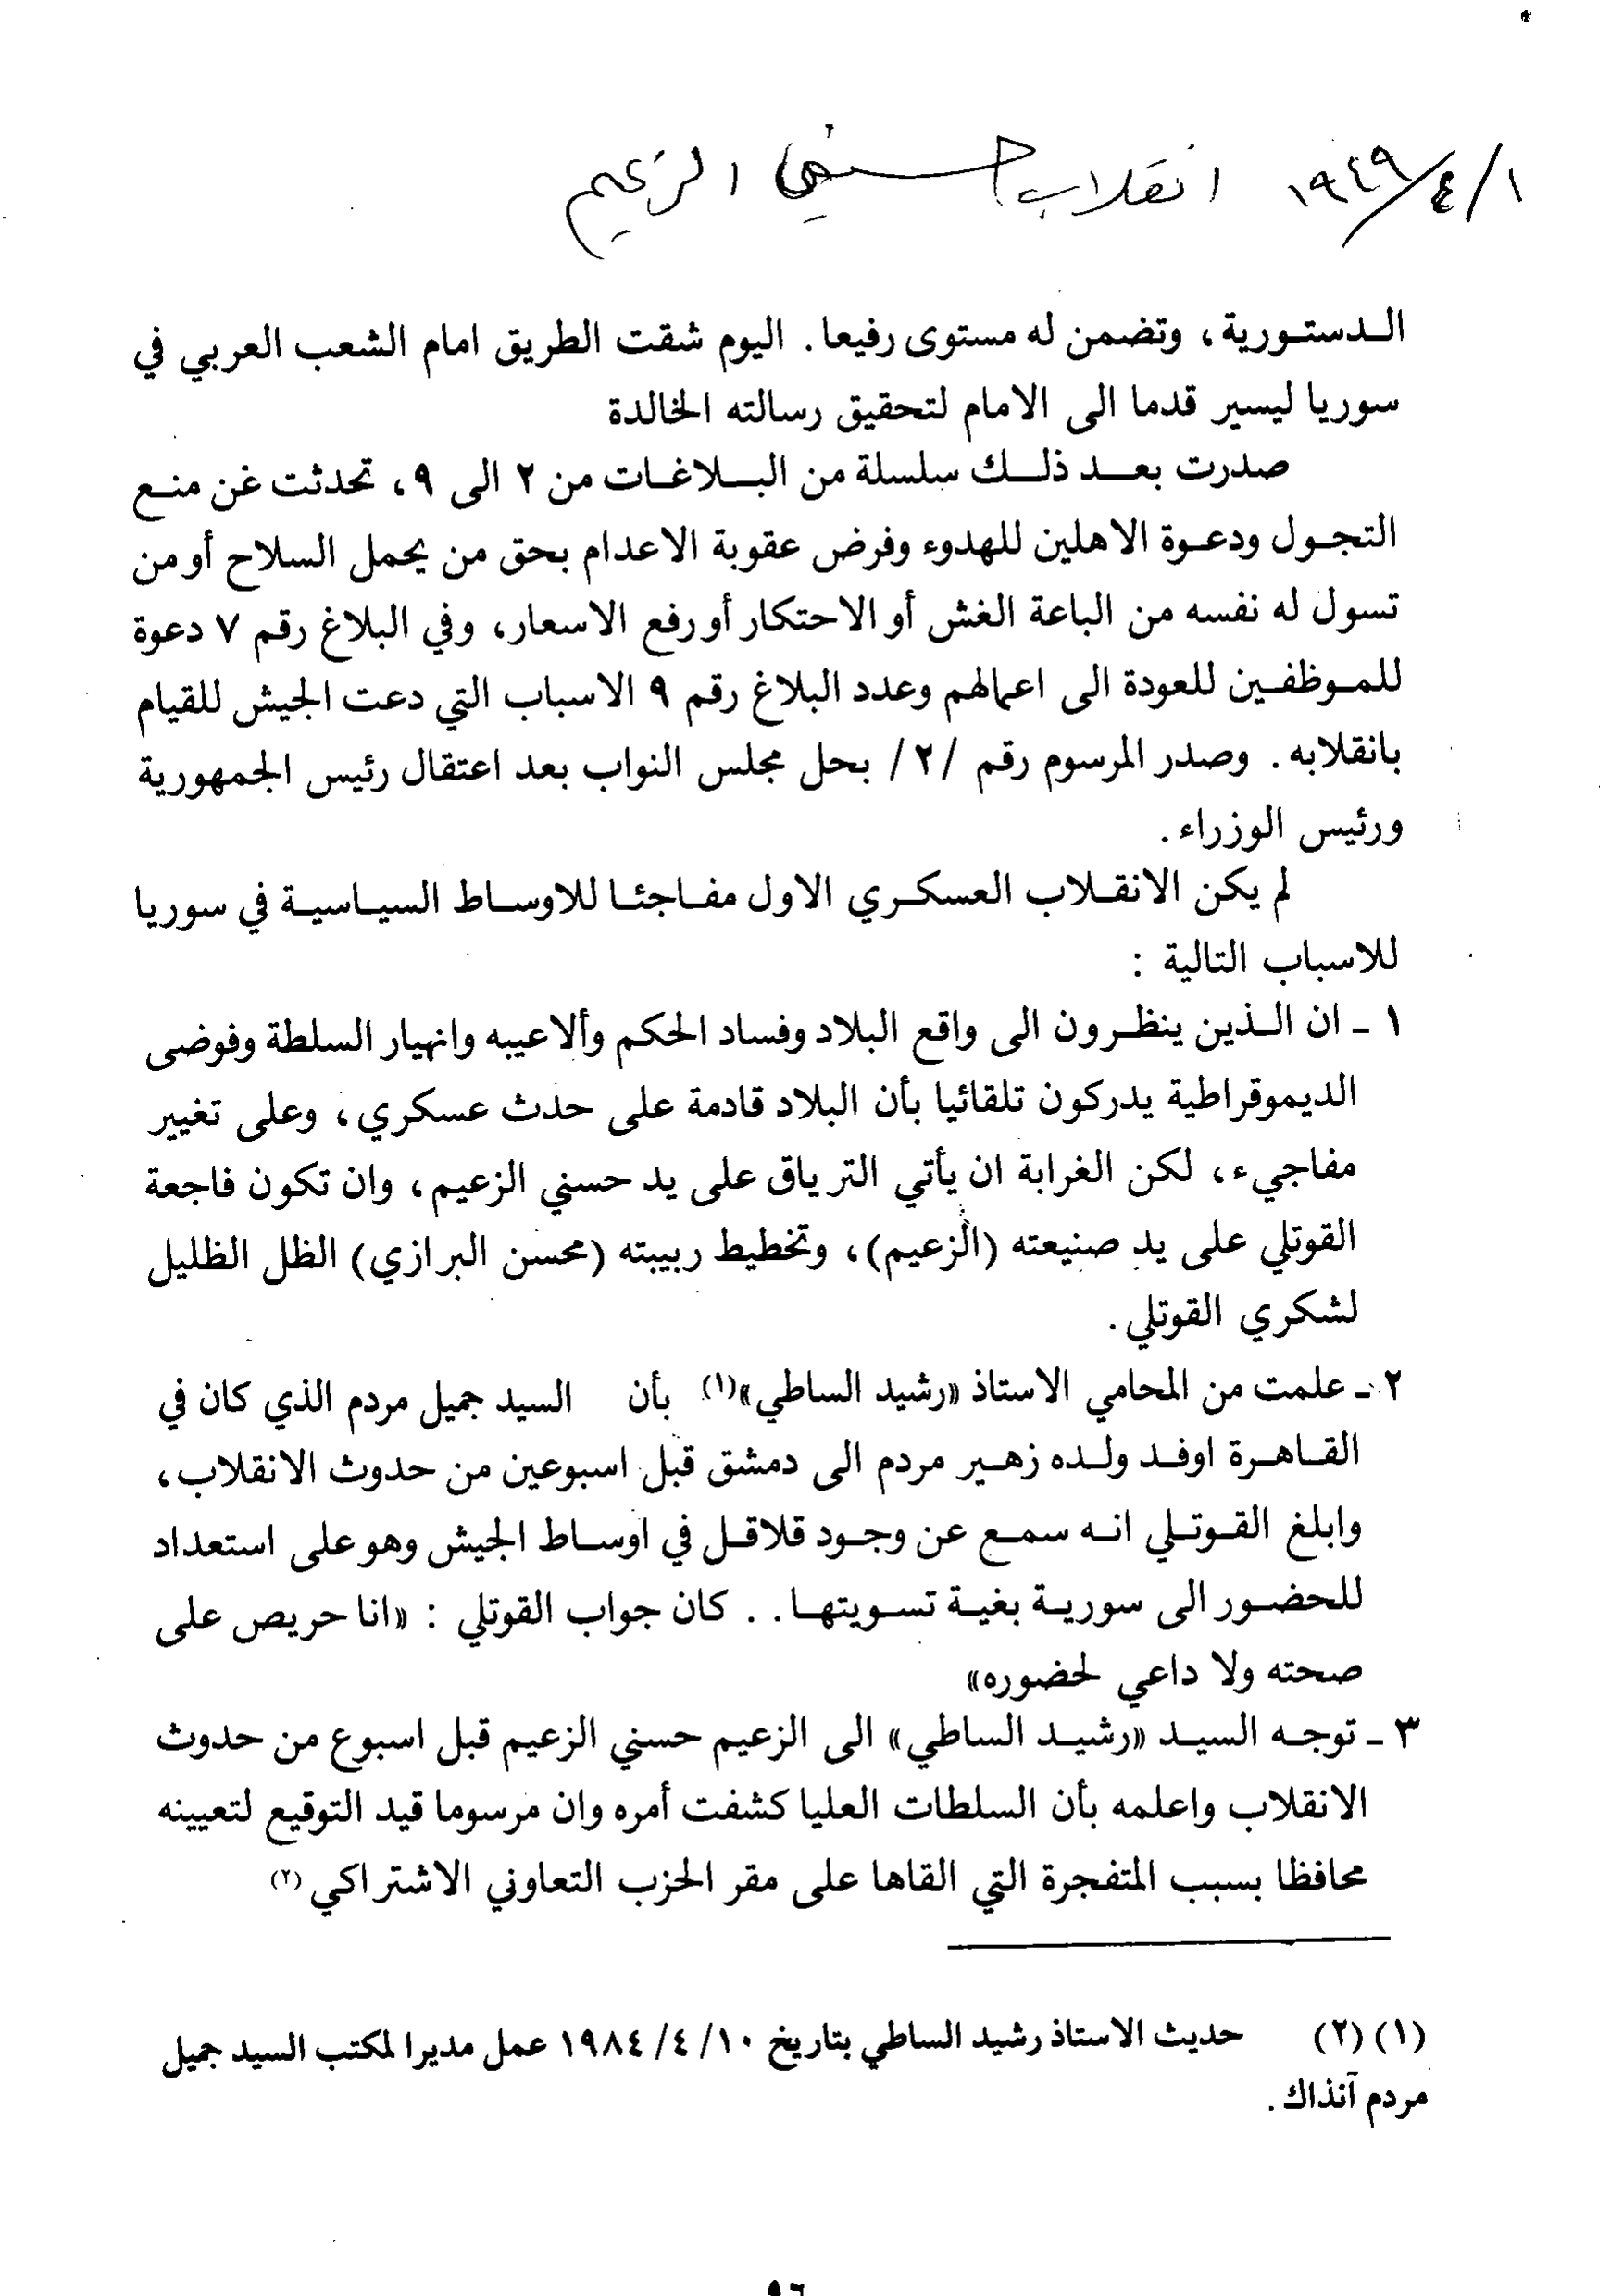 ١/٤/١٩٤٩ انقلاب حسني الزعيم
الـدستـورية، وتضمن له مستوى رفيعا. اليوم شقت الطريق امام الشعب العربي في
سوريا ليسير قدما الى الامام لتحقيق رسالته الخالدة
صدرت بعـد ذلـك سلسلة من البـلاغـات من ٢ الى ٩، تحدثت غن منـع
التجـول ودعـوة الاهلين للهدوء وفرض عقوبة الاعدام بحق من يحمل السلاح أو من
تسول له نفسه من الباعة الغش أو الاحتكار أو رفع الاسعار، وفي البلاغ رقم ٧ دعوة
للمـوظفـين للعودة الى اعمالهم وعدد البلاغ رقم ٩ الاسباب التي دعت الجيش للقيام
بانقلابه. وصدر المرسوم رقم /٢/ بحل مجلس النواب بعد اعتقال رئيس الجمهورية
ورئيس الوزراء.
لم يكن الانقـلاب العسكـري الاول مفـاجئـا للاوسـاط السيـاسيـة في سوريا
للاسباب التالية :
١ ـ ان الـذين ينظـرون الى واقع البلاد وفساد الحكم وألاعيبه وانهيار السلطة وفوضى
الديموقراطية يدركون تلقائيا بأن البلاد قادمة على حدث عسكري، وعلى تغيير
مفاجيء، لكن الغرابة ان يأتي الترياق على يد حسني الزعيم، وان تكون فاجعة
القوتلي على يد صنيعته (الزعيم)، وتخطيط ربيبته (محسن البرازي) الظل الظليل
لشكري القوتلي.
٢ ـ علمت من المحامي الاستاذ «رشيد الساطي»(١) بأن السيد جميل مردم الذي كان في
القـاهـرة اوفـد ولـده زهـير مردم الى دمشق قبل اسبوعين من حدوث الانقلاب،
وابلغ القـوتـلي انـه سمـع عن وجـود قلاقـل في اوسـاط الجيش وهو على استعداد
للحضـور الى سوريـة بغيـة تسـويتهـا.. كان جواب القوتلي : «انا حريص على
صحته ولا داعي لحضوره»
٣ ـ توجـه السيـد «رشيـد الساطي» الى الزعيم حسني الزعيم قبل اسبوع من حدوث
الانقلاب واعلمه بأن السلطات العليا كشفت أمره وان مرسوما قيد التوقيع لتعيينه
محافظا بسبب المتفجرة التي القاها على مقر الحزب التعاوني الاشتراكي(٢)
(١) (٢) حديث الاستاذ رشيد الساطي بتاريخ ١٠/ ٤/ ١٩٨٤ عمل مديرا لمكتب السيد جميل
مردم آنذاك.